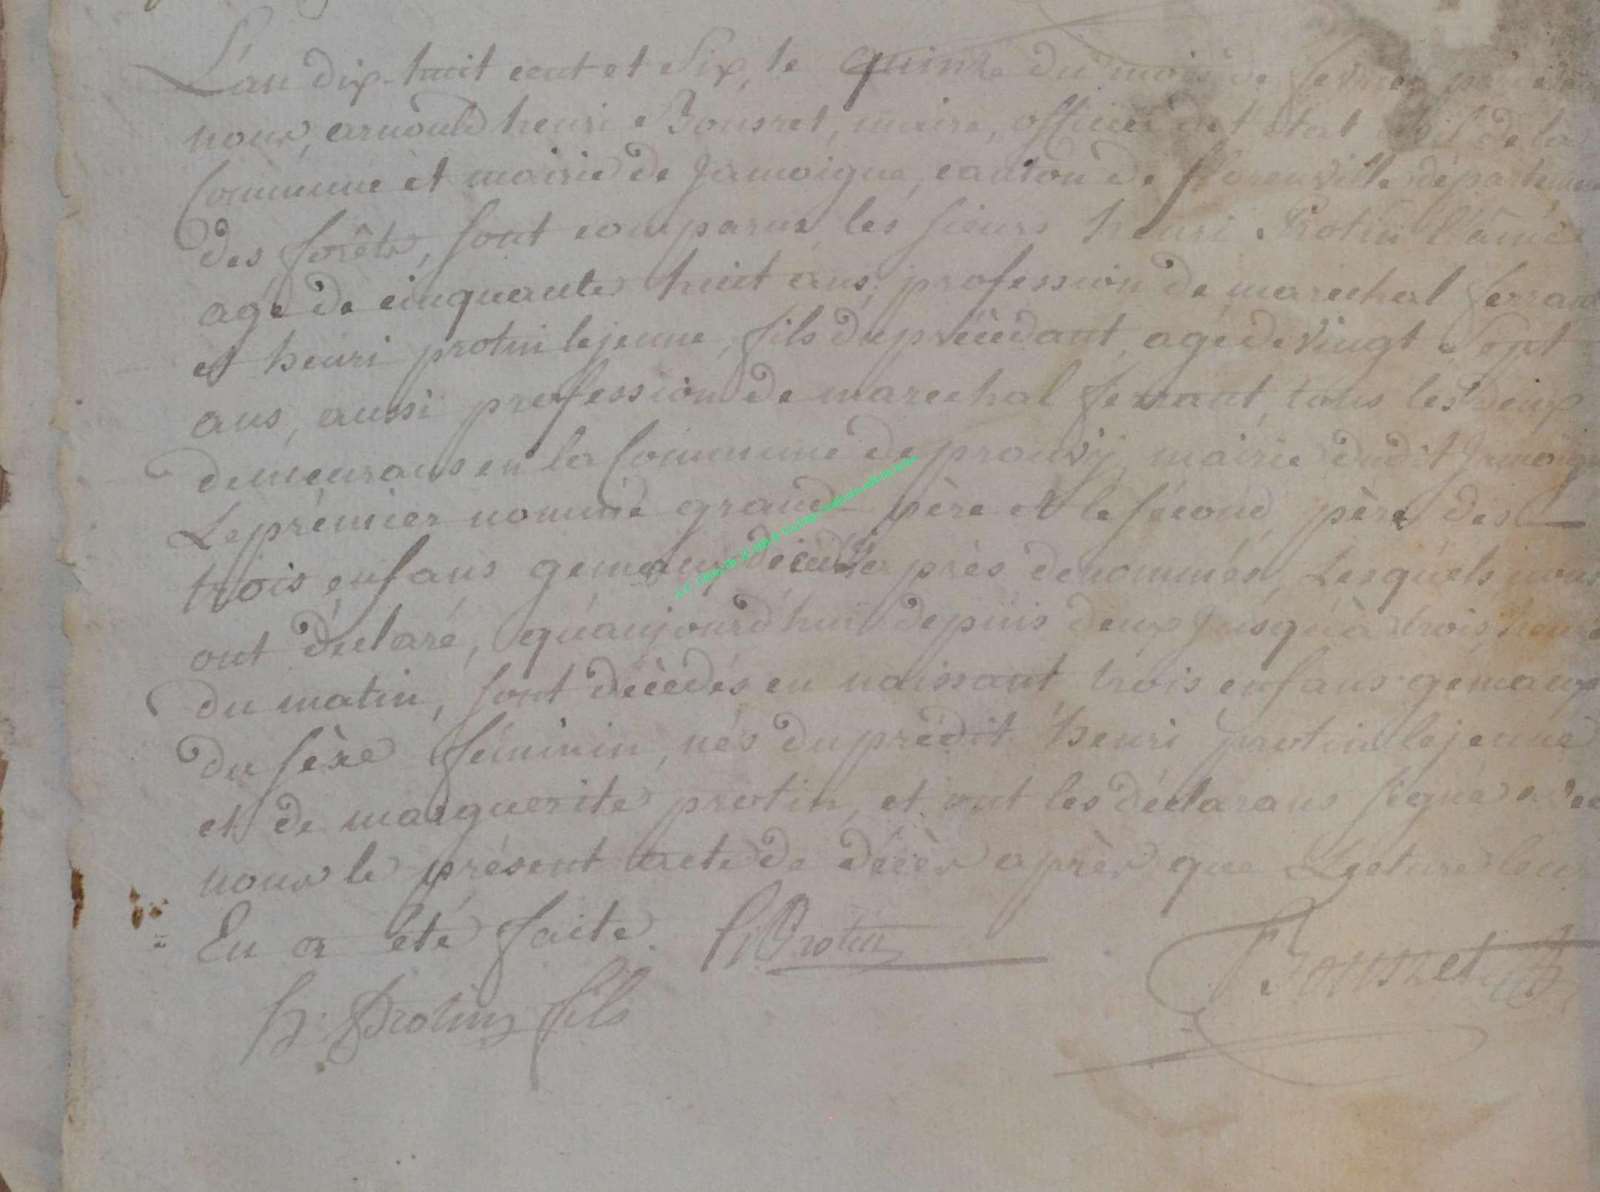 L'an dix-huit cent et Six, le quinze du mois de fevrier
nous, arnould henri Bousret, maire, officier de l'état civil de la
Commune et mairie de Jamoigne, canton de florenville département
des forêts, sont comparus les sieurs henri Protin l'ainé
agé de cinquante huit ans, profession de marechal ferrant
et henri protin lejeune, fils du précédant, agé de vingt Sept
ans, aussi profession de marechal ferrant, tous les deux
demeurans en la Commune de prouvÿ, mairie dudit Jamoigne
Le prémier nommé grand père et le sécond père des
trois enfans gemaux décédés après denommés, Lesquels nous
ont déclaré, qu'aujourd'hui depuis deux jusqu'à trois heures
du matin, sont décèdés en naissant trois enfans gemaux
du sèxe féminin, nés du prédit henri protin lejeune
et de marguerite protin, et ont les déclarans signé avec
nous le présent acte de décès après que Lecture leur
En a été faite. h. Protin
h. Protin fils Bousret